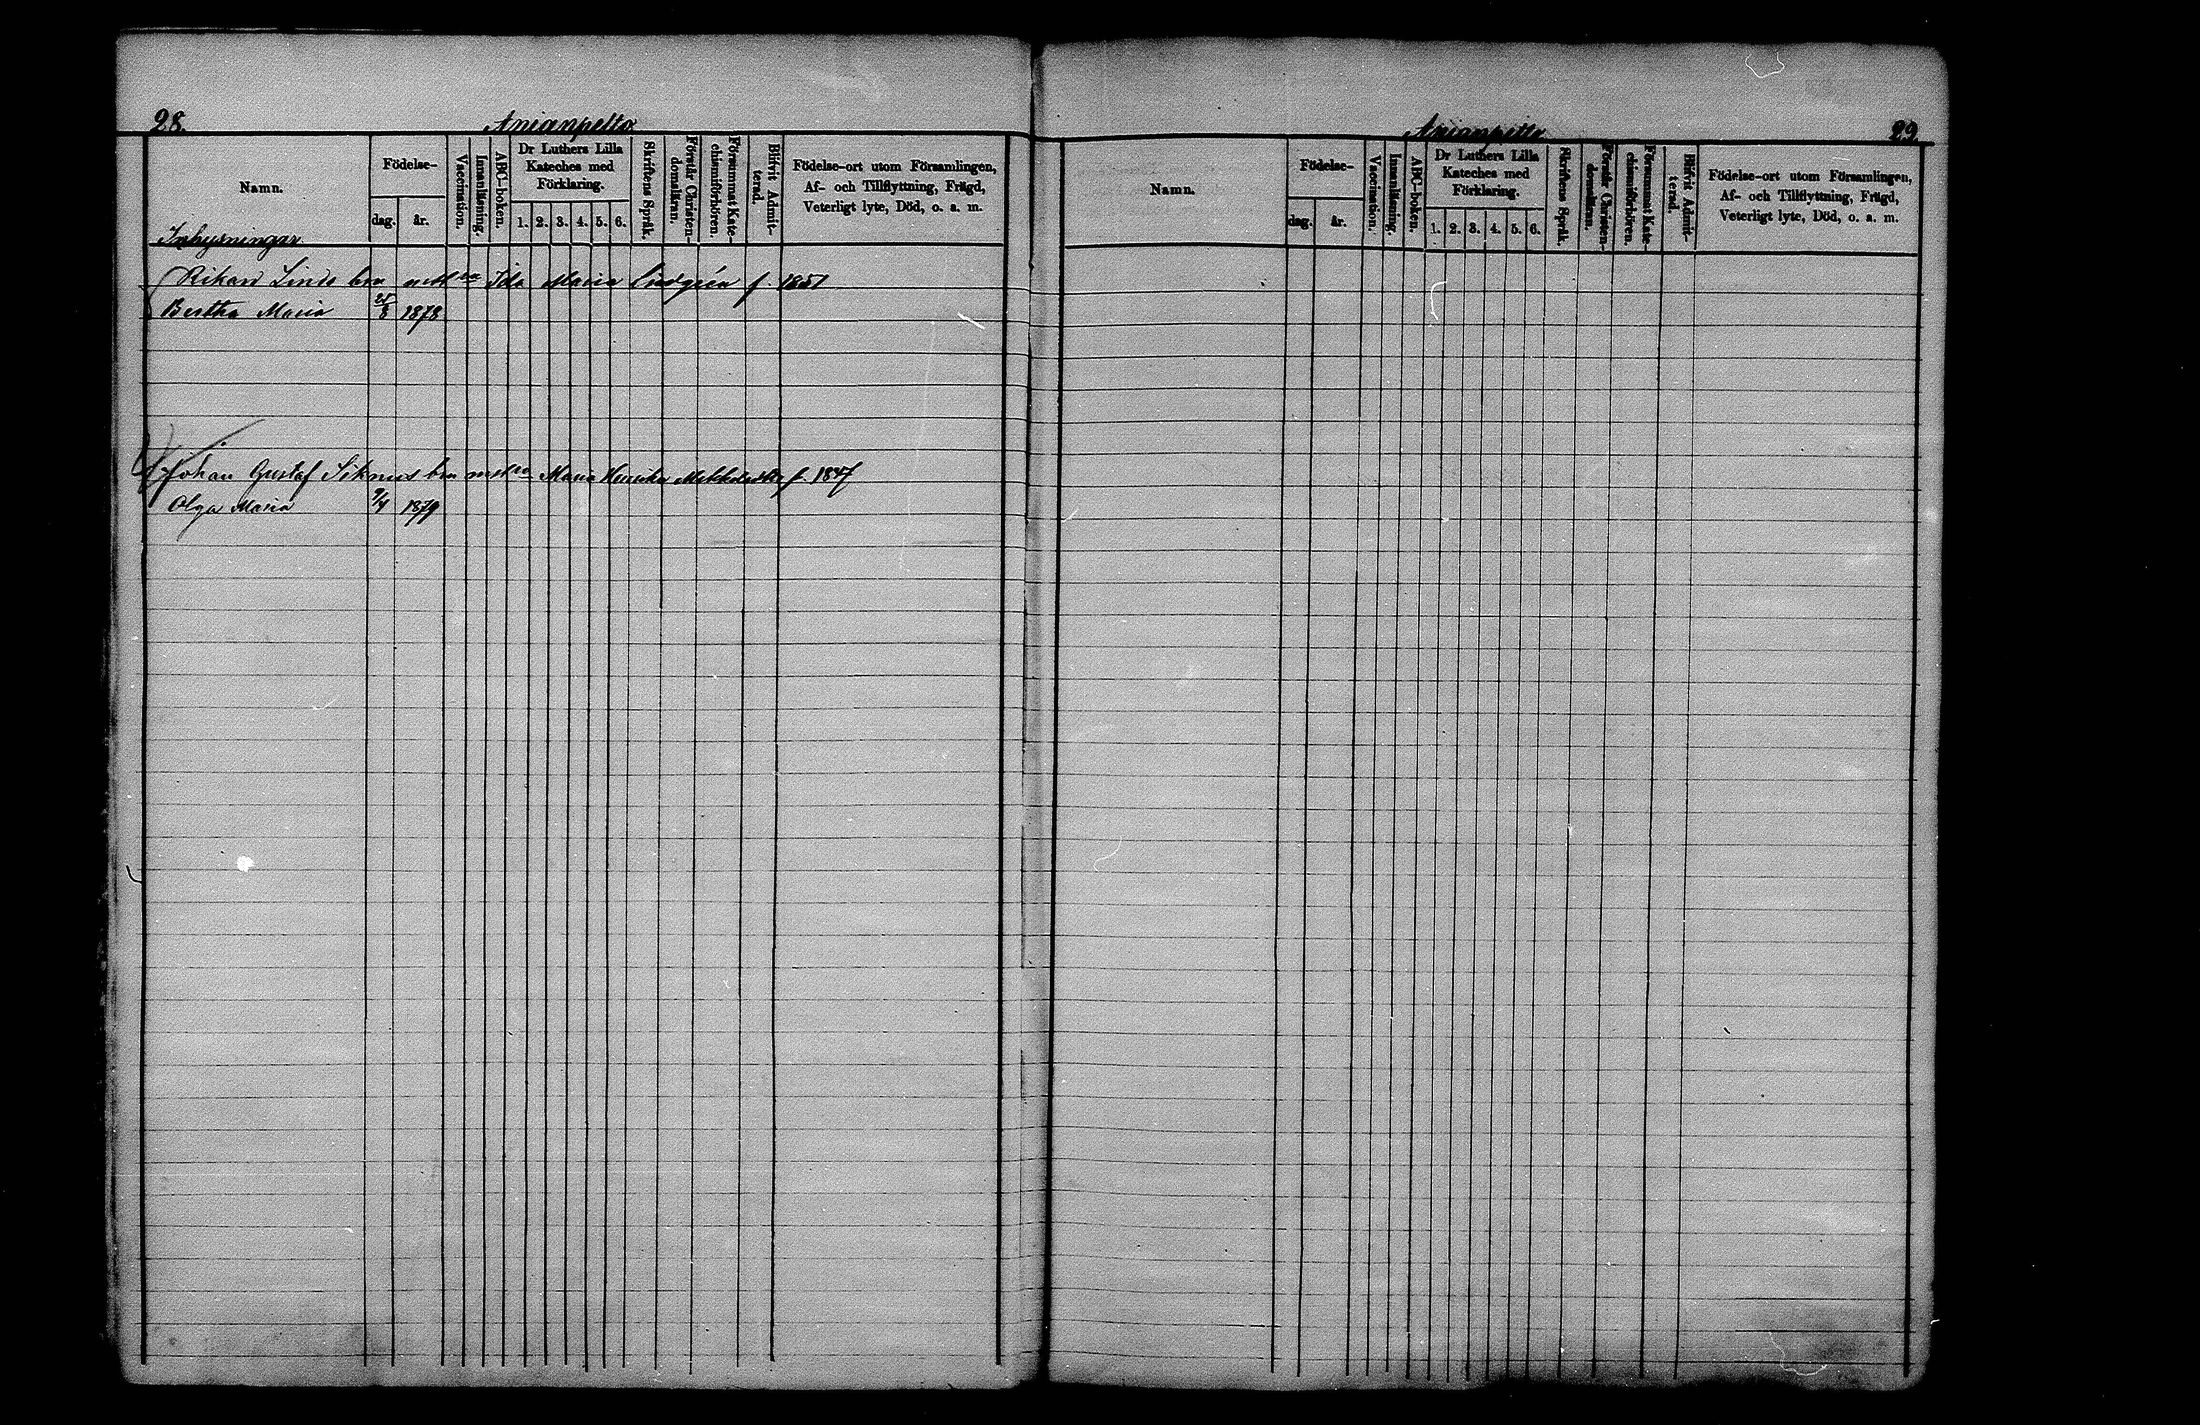 28. Anianpelto
Namn.
Födelse-
dag. år.
Vaccination.
Innanläsning.
ABC-boken.
Dr Luthers Lilla
Kateches med
Förklaring.
1. 2. 3. 4. 5. 6.
Skriftens Språk.
Förstår Christen-
domsläran.
Försummat Kate-
chismiförhören.
Blifvit Admit-
terad.
Födelse-ort utom Församlingen,
Af- och Tillflyttning, Frägd,
Veterligt lyte, Död, o. a. m.
Inhysningar
Rikard Lindo Ida Maria Lindgrén f. 1851
Bertha Maria 1878
Johan Gustaf Maria f. 1847
Olga Maria 9/4 1879
Anianpelto 29.
Namn.
Födelse-
dag. år.
Vaccination.
Innanläsning.
ABC-boken.
Dr Luthers Lilla
Kateches med
Förklaring.
1. 2. 3. 4. 5. 6.
Skriftens Språk.
Förstår Christen-
domsläran.
Försummat Kate-
chismiförhören.
Blifvit Admit-
terad.
Födelse-ort utom Församlingen,
Af- och Tillflyttning, Frägd,
Veterligt lyte, Död, o. a. m.